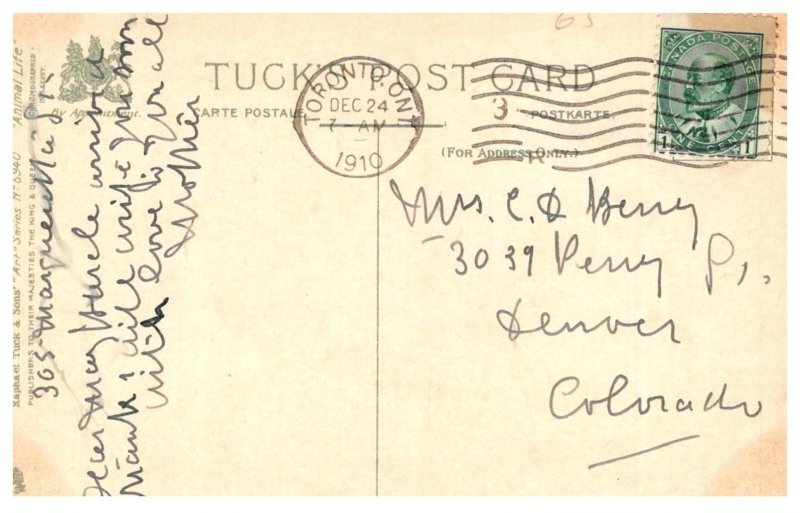 TUCK'S POST CARD
CARTE POSTALE
POSTKARTE
(FOR ADDRESS ONLY.)
By Appointment.
TORONTO, ONT
DEC 24
7 - AM
1910
3
R
63
CANADA POSTAGE
ONE CENT
1 1
Mrs. C. D Berry
3039 Perry
Denver
Colorado
Raphael Tuck & Sons' "Art" Series No 6940 "Animal Life"
PUBLISHERS TO THEIR MAJESTIES THE KING & QUEEN
365 Margueretta
Dear May Parcle arrived
thanks will write you soon
with love to you all
Mother